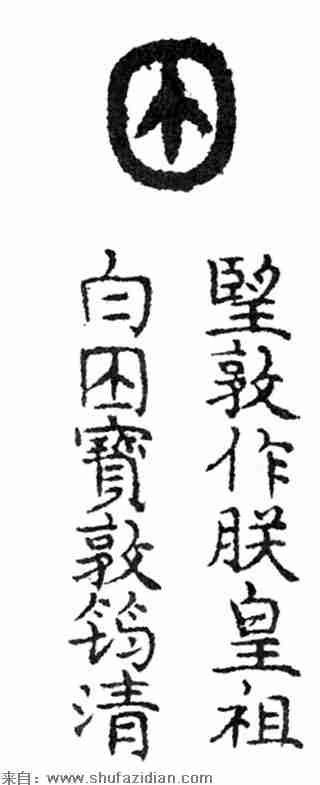 朢敦作朕皇祖
白寶敦筠清
来自：www.shufazidian.com